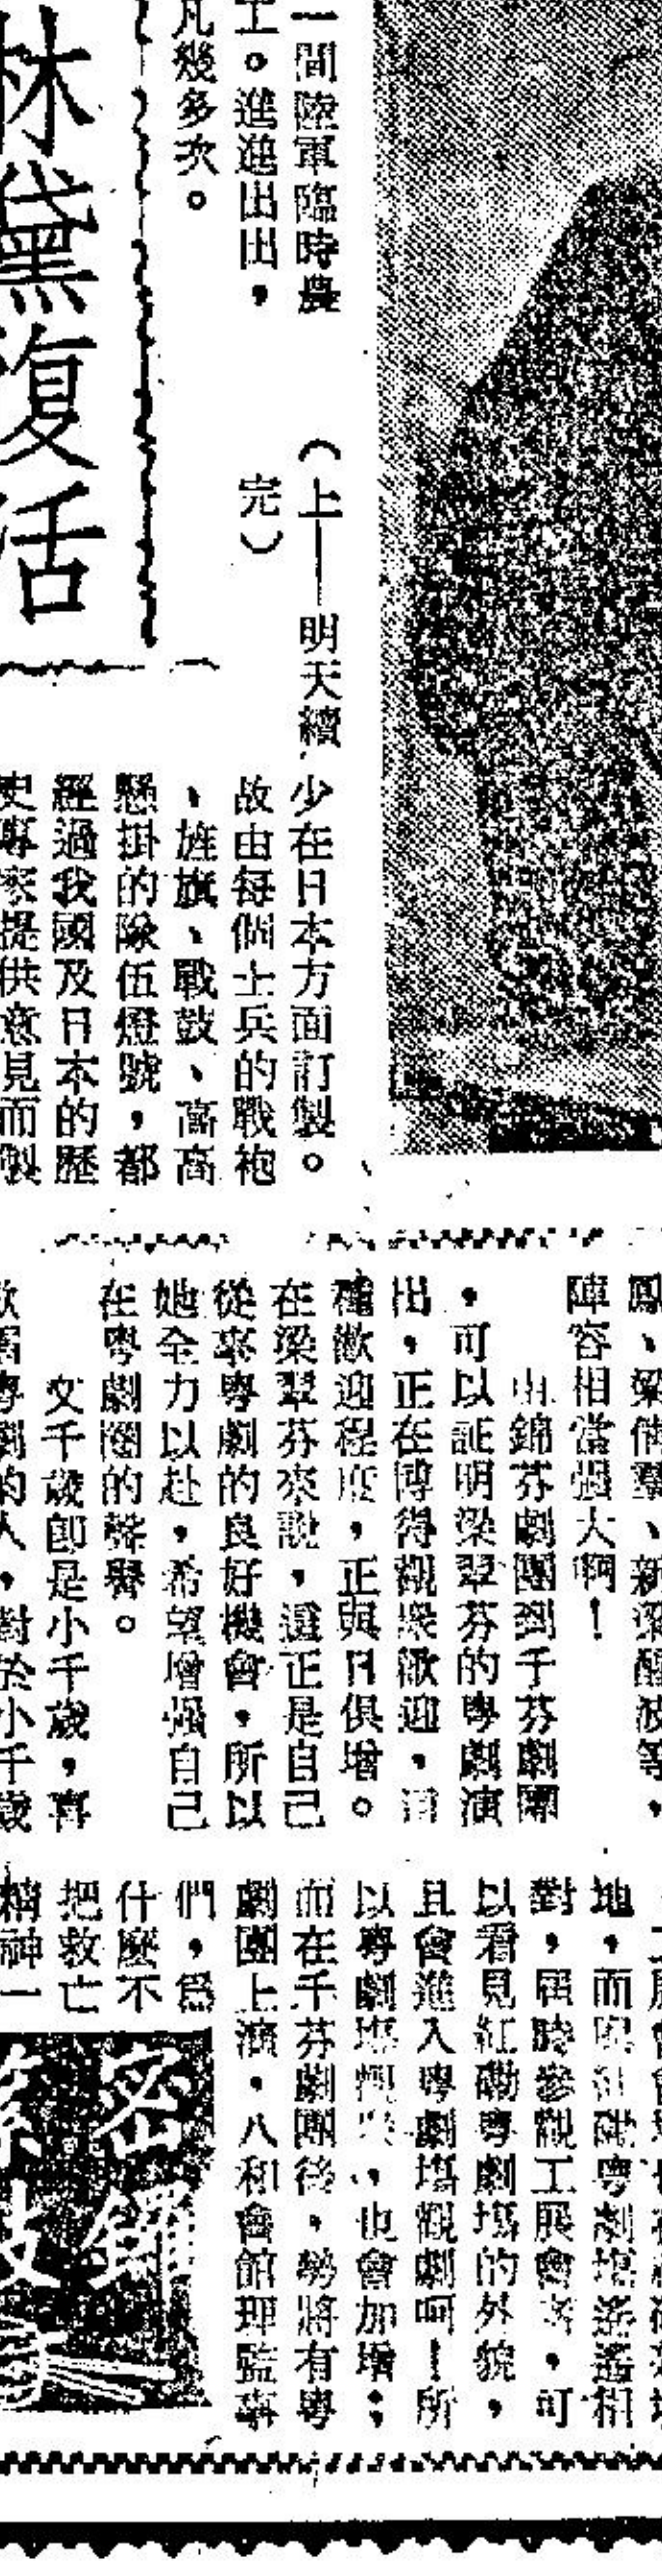 一間陸軍臨時農
工。進進出出，
凡幾多次。
（上——明天續
完）
林黛復活
少在日本方面訂製。
故由每個士兵的戰袍
、旌旗、戰鼓、高高
懸掛的隊伍燈號，都
經過我國及日本的歷
史專家提供意見而製
鳳、梁倩羣、新梁醒波等，
陣容相當强大啊！
由錦芬劇團到千芬劇團
，可以証明梁翠芬的粵劇演
出，正在博得觀衆歡迎，
種歡迎程度，正與日俱增。
在梁翠芬來說，這正是自己
從事粵劇的良好機會，所以
她全力以赴，希望增强自己
在粵劇圈的聲譽。
文千歲卽是小千歲，喜
歡看粵劇的人，對於小千歲
地，而與紅磡粵劇場遙遙相
對，屆時參觀工展會者，可
以看見紅磡粵劇場的外貌，
且會進入粵劇場觀劇呵！所
以粵劇場，也會加增；
而在千芬劇團後，勢將有粵
劇團上演，八和會館理監事
們，爲
什麼不
把救亡
精神一
密鑼
緊鼓